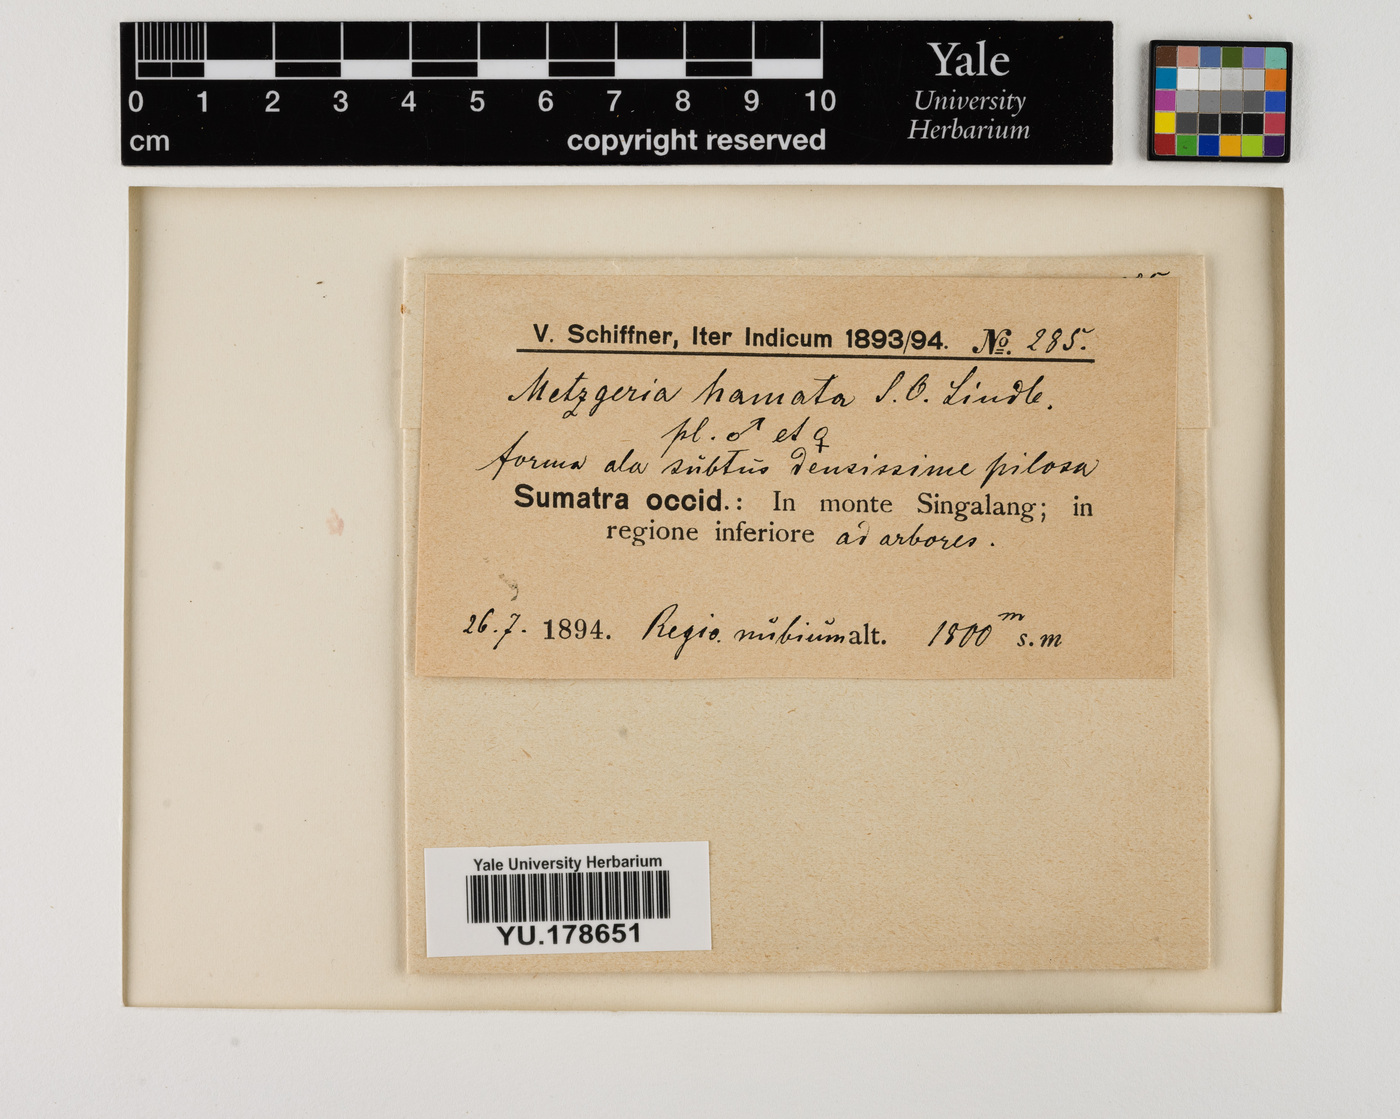 0 1 2 3 4 5 6 7 8 9 10
cm copyright reserved
Yale
University
Herbarium
V. Schiffner, Iter Indicum 1893/94. No. 285.
Metzgeria hamata S. O. Lindb.
pl. ♂ et ♀
forma ala subtus densissime pilosa
Sumatra occid.: In monte Singalang; in
regione inferiore ad arbores.
26. 7. 1894. Regio. nubium alt. 1800 m s. m
Yale University Herbarium
YU.178651